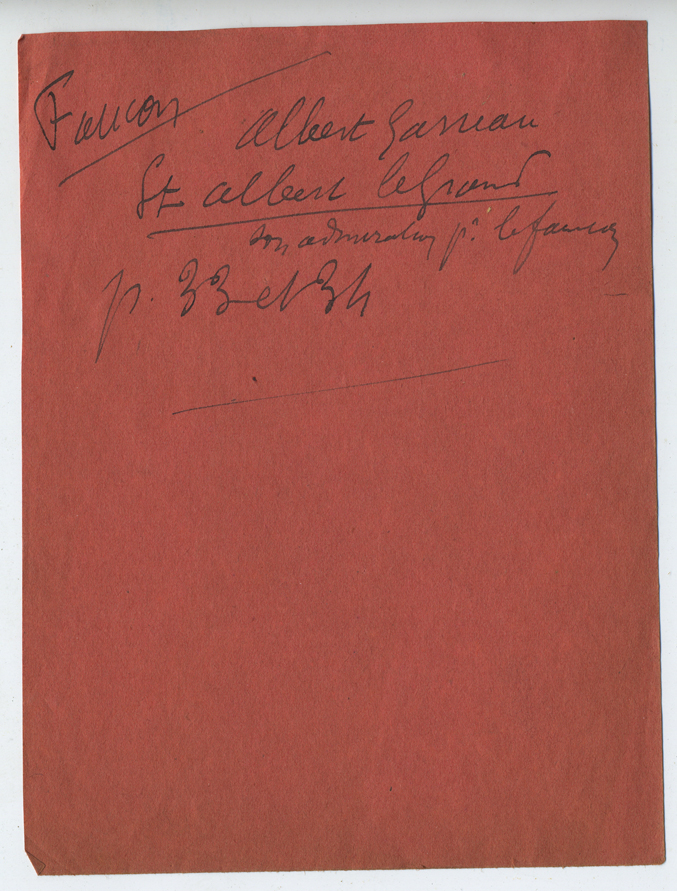 Faucon
Albert Garreau
St Albert le Grand
son admiration pr le faucon
p. 33 et 34